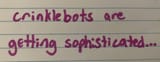 crinklebots are
getting sophisticated...